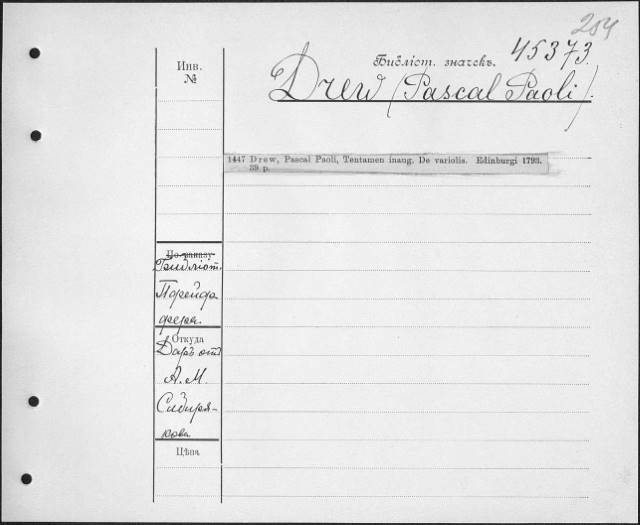 204
Инв.
№
Библіот. значекъ. 45373.
Drew (Pascal Paoli).
1447 Drew, Pascal Paoli, Tentamen inaug. De variolis. Edinburgi 1793.
39 p.
По заказу
Библіот.
Порейфа
фера.
Откуда
Даръ отъ
А. М.
Сибиря-
кова
Цѣна